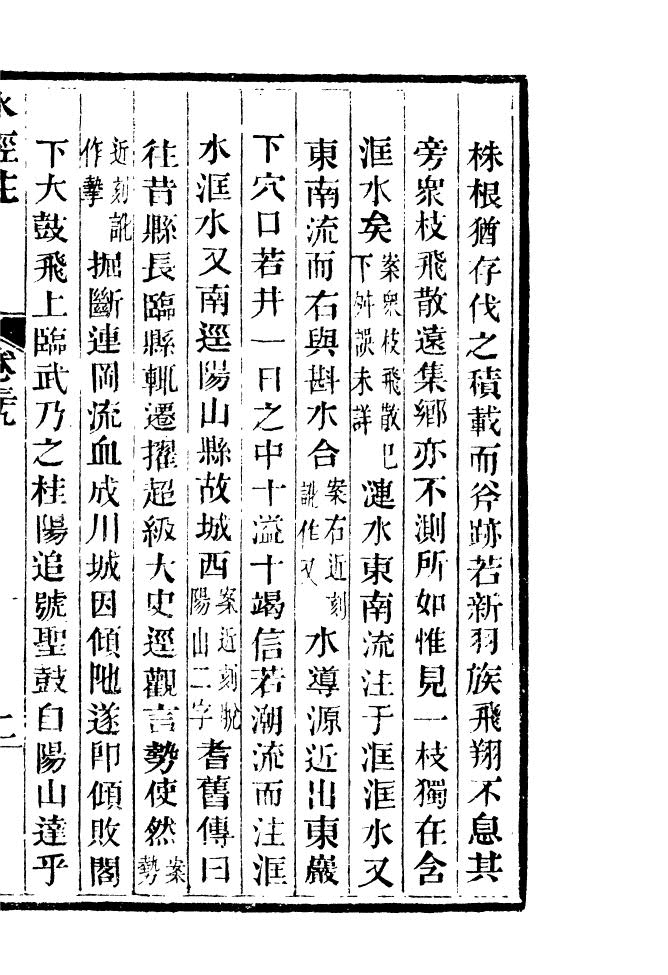 株根猶存伐之積載而斧跡若新羽族飛翔不息其
旁衆枝飛散遠集鄉亦不測所如惟見一枝獨在含
洭水矣案衆枝飛散已下舛誤未詳漣水東南流注于洭洭水又
東南流而右與斟水合案右近刻訛作又水導源近出東巖
下穴口若井一日之中十溢十竭信若潮流而注洭
水洭水又南逕陽山縣故城西案近刻脫陽山二字耆舊傳曰
往昔縣長臨縣輒遷擢超級大史逕觀言勢使然案勢
近刻訛作摯掘斷連岡流血成川城因傾阤遂卽傾敗閣
下大鼓飛上臨武乃之桂陽追號聖鼓自陽山達乎
水經注
卷三十九